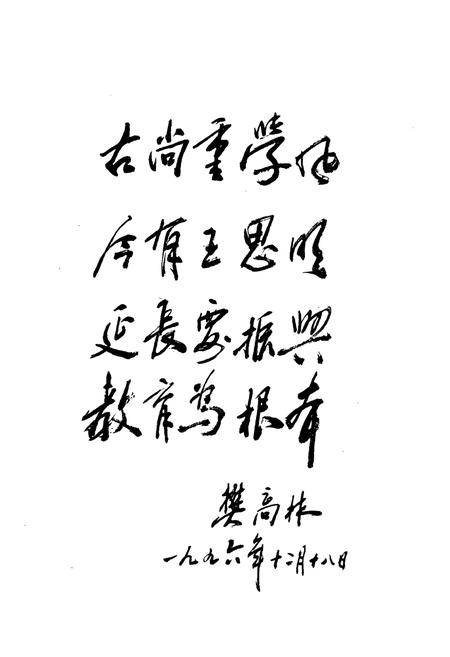 古尚重學風
今有王思明
延長要振興
教育為根本
樊高林
一九九六年十二月十八日